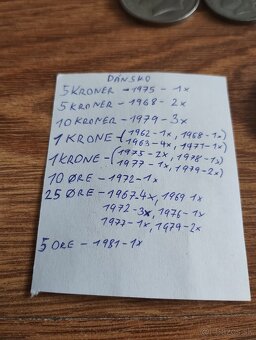 DÁNSKO
5 KRONER - 1975 - 1x
5 KRONER - 1968 - 2x
10 KRONER - 1979 - 3x
1 KRONE - (1962 - 1x, 1968 - 1x)
1963 - 4x, 1971 - 1x
1 KRONE - (1975 - 2x, 1978 - 1x)
1977 - 1x, 1979 - 2x)
10 ØRE - 1972 - 1x
25 ØRE - 1967 - 4x, 1969 1x
1972 - 3x, 1976 - 1x
1977 - 1x, 1979 - 2x
5 ORE - 1981 - 1x